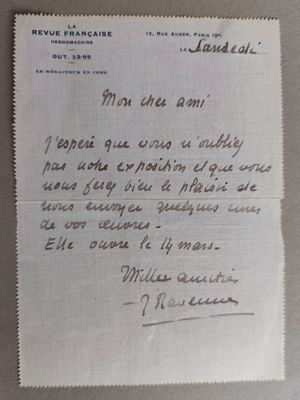 LA
REVUE FRANÇAISE
HEBDOMADAIRE
GUT. 33-99
LE RÉDACTEUR EN CHEF
13, RUE AUBER, PARIS (9e)
LE Samedi
Mon cher ami
J'espère que vous n'oubliez
pas notre exposition et que vous
nous ferez bien le plaisir de
nous envoyer quelques unes
de vos œuvres.-
Elle ouvre le 14 mars.-
Milles amitiés